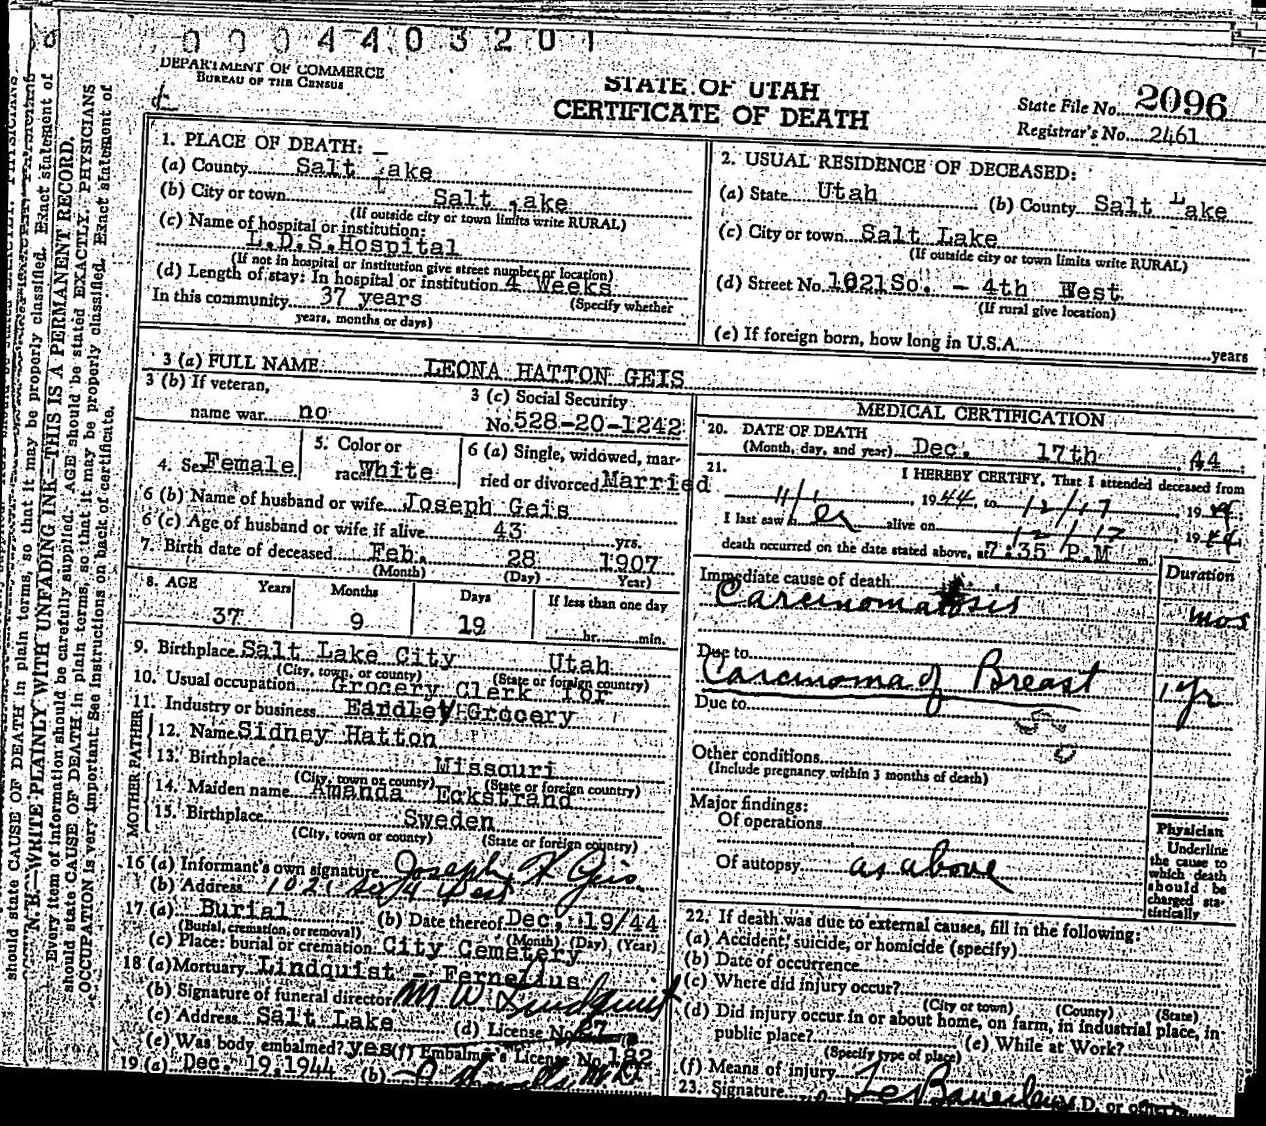 0 0 0 4 4 0 3 2 0 1
DEPARTMENT OF COMMERCE
BUREAU OF THE CENSUS
STATE OF UTAH
CERTIFICATE OF DEATH
State File No. 2096
Registrar's No. 2461
1. PLACE OF DEATH:
(a) County Salt Lake
(b) City or town Salt Lake
(If outside city or town limits write RURAL)
(c) Name of hospital or institution:
L.D.S.Hospital
(If not in hospital or institution give street number or location)
(d) Length of stay: In hospital or institution 4 Weeks
In this community 37 years (Specify whether
years, months or days)
2. USUAL RESIDENCE OF DECEASED:
(a) State Utah (b) County Salt Lake
(c) City or town Salt Lake
(If outside city or town limits write RURAL)
(d) Street No. 1021So. - 4th West
(If rural give location)
(e) If foreign born, how long in U.S.A. years
3 (a) FULL NAME LEONA HATTON GEIS
3 (b) If veteran,
name war no
3 (c) Social Security
No. 528-20-1242
4. Sex Female
5. Color or
race White
6 (a) Single, widowed, mar-
ried or divorced Married
6 (b) Name of husband or wife Joseph Geis
6 (c) Age of husband or wife if alive 43 yrs.
7. Birth date of deceased Feb. 28 1907
(Month) (Day) (Year)
8. AGE Years Months Days If less than one day
37 9 19 hr. min.
9. Birthplace Salt Lake City Utah
(City, town, or county) (State or foreign country)
10. Usual occupation Grocery Clerk for
11. Industry or business Eardley Grocery
FATHER
12. Name Sidney Hatton
13. Birthplace Missouri
(City, town or county) (State or foreign country)
MOTHER
14. Maiden name Amanda Eckstrand
15. Birthplace Sweden
(City, town or county) (State or foreign country)
16 (a) Informant's own signature Joseph K Geis
(b) Address 1021 So 4 West
17 (a) Burial (b) Date thereof Dec. 19/44
(Burial, cremation, or removal) (Month) (Day) (Year)
(c) Place: burial or cremation: City Cemetery
18 (a) Mortuary Lindquist - Fernelius
(b) Signature of funeral director M W Lindquist
(c) Address Salt Lake (d) License No. 27
(e) Was body embalmed? yes (f) Embalmer's License No. 182
19 (a) Dec. 19,1944 (b) M.D.
MEDICAL CERTIFICATION
20. DATE OF DEATH
(Month, day, and year) Dec. 17th 44
21. I HEREBY CERTIFY, That I attended deceased from
11/1, 1944, to 12/17, 1944;
I last saw her alive on 12/17 1944
death occurred on the date stated above, at 7:35 P.M m.
Duration
Immediate cause of death
Carcinomatosis mos
Due to
Carcinoma of Breast 1 yr
Due to
Other conditions
(Include pregnancy within 3 months of death)
Major findings:
Of operations
Of autopsy as above
Physician
Underline
the cause to
which death
should be
charged sta-
tistically
22. If death was due to external causes, fill in the following:
(a) Accident, suicide, or homicide (specify)
(b) Date of occurrence
(c) Where did injury occur?
(City or town) (County) (State)
(d) Did injury occur in or about home, on farm, in industrial place, in
public place? (e) While at Work?
(Specify type of place)
(f) Means of injury
23. Signature M.D. or other
N. B.—WRITE PLAINLY WITH UNFADING INK—THIS IS A PERMANENT RECORD.
Every item of information should be carefully supplied. AGE should be stated EXACTLY. PHYSICIANS
should state CAUSE OF DEATH in plain terms, so that it may be properly classified. Exact statement of
OCCUPATION is very important. See instructions on back of certificate.
should state CAUSE OF DEATH in plain terms, so that it may be properly classified. Exact statement of